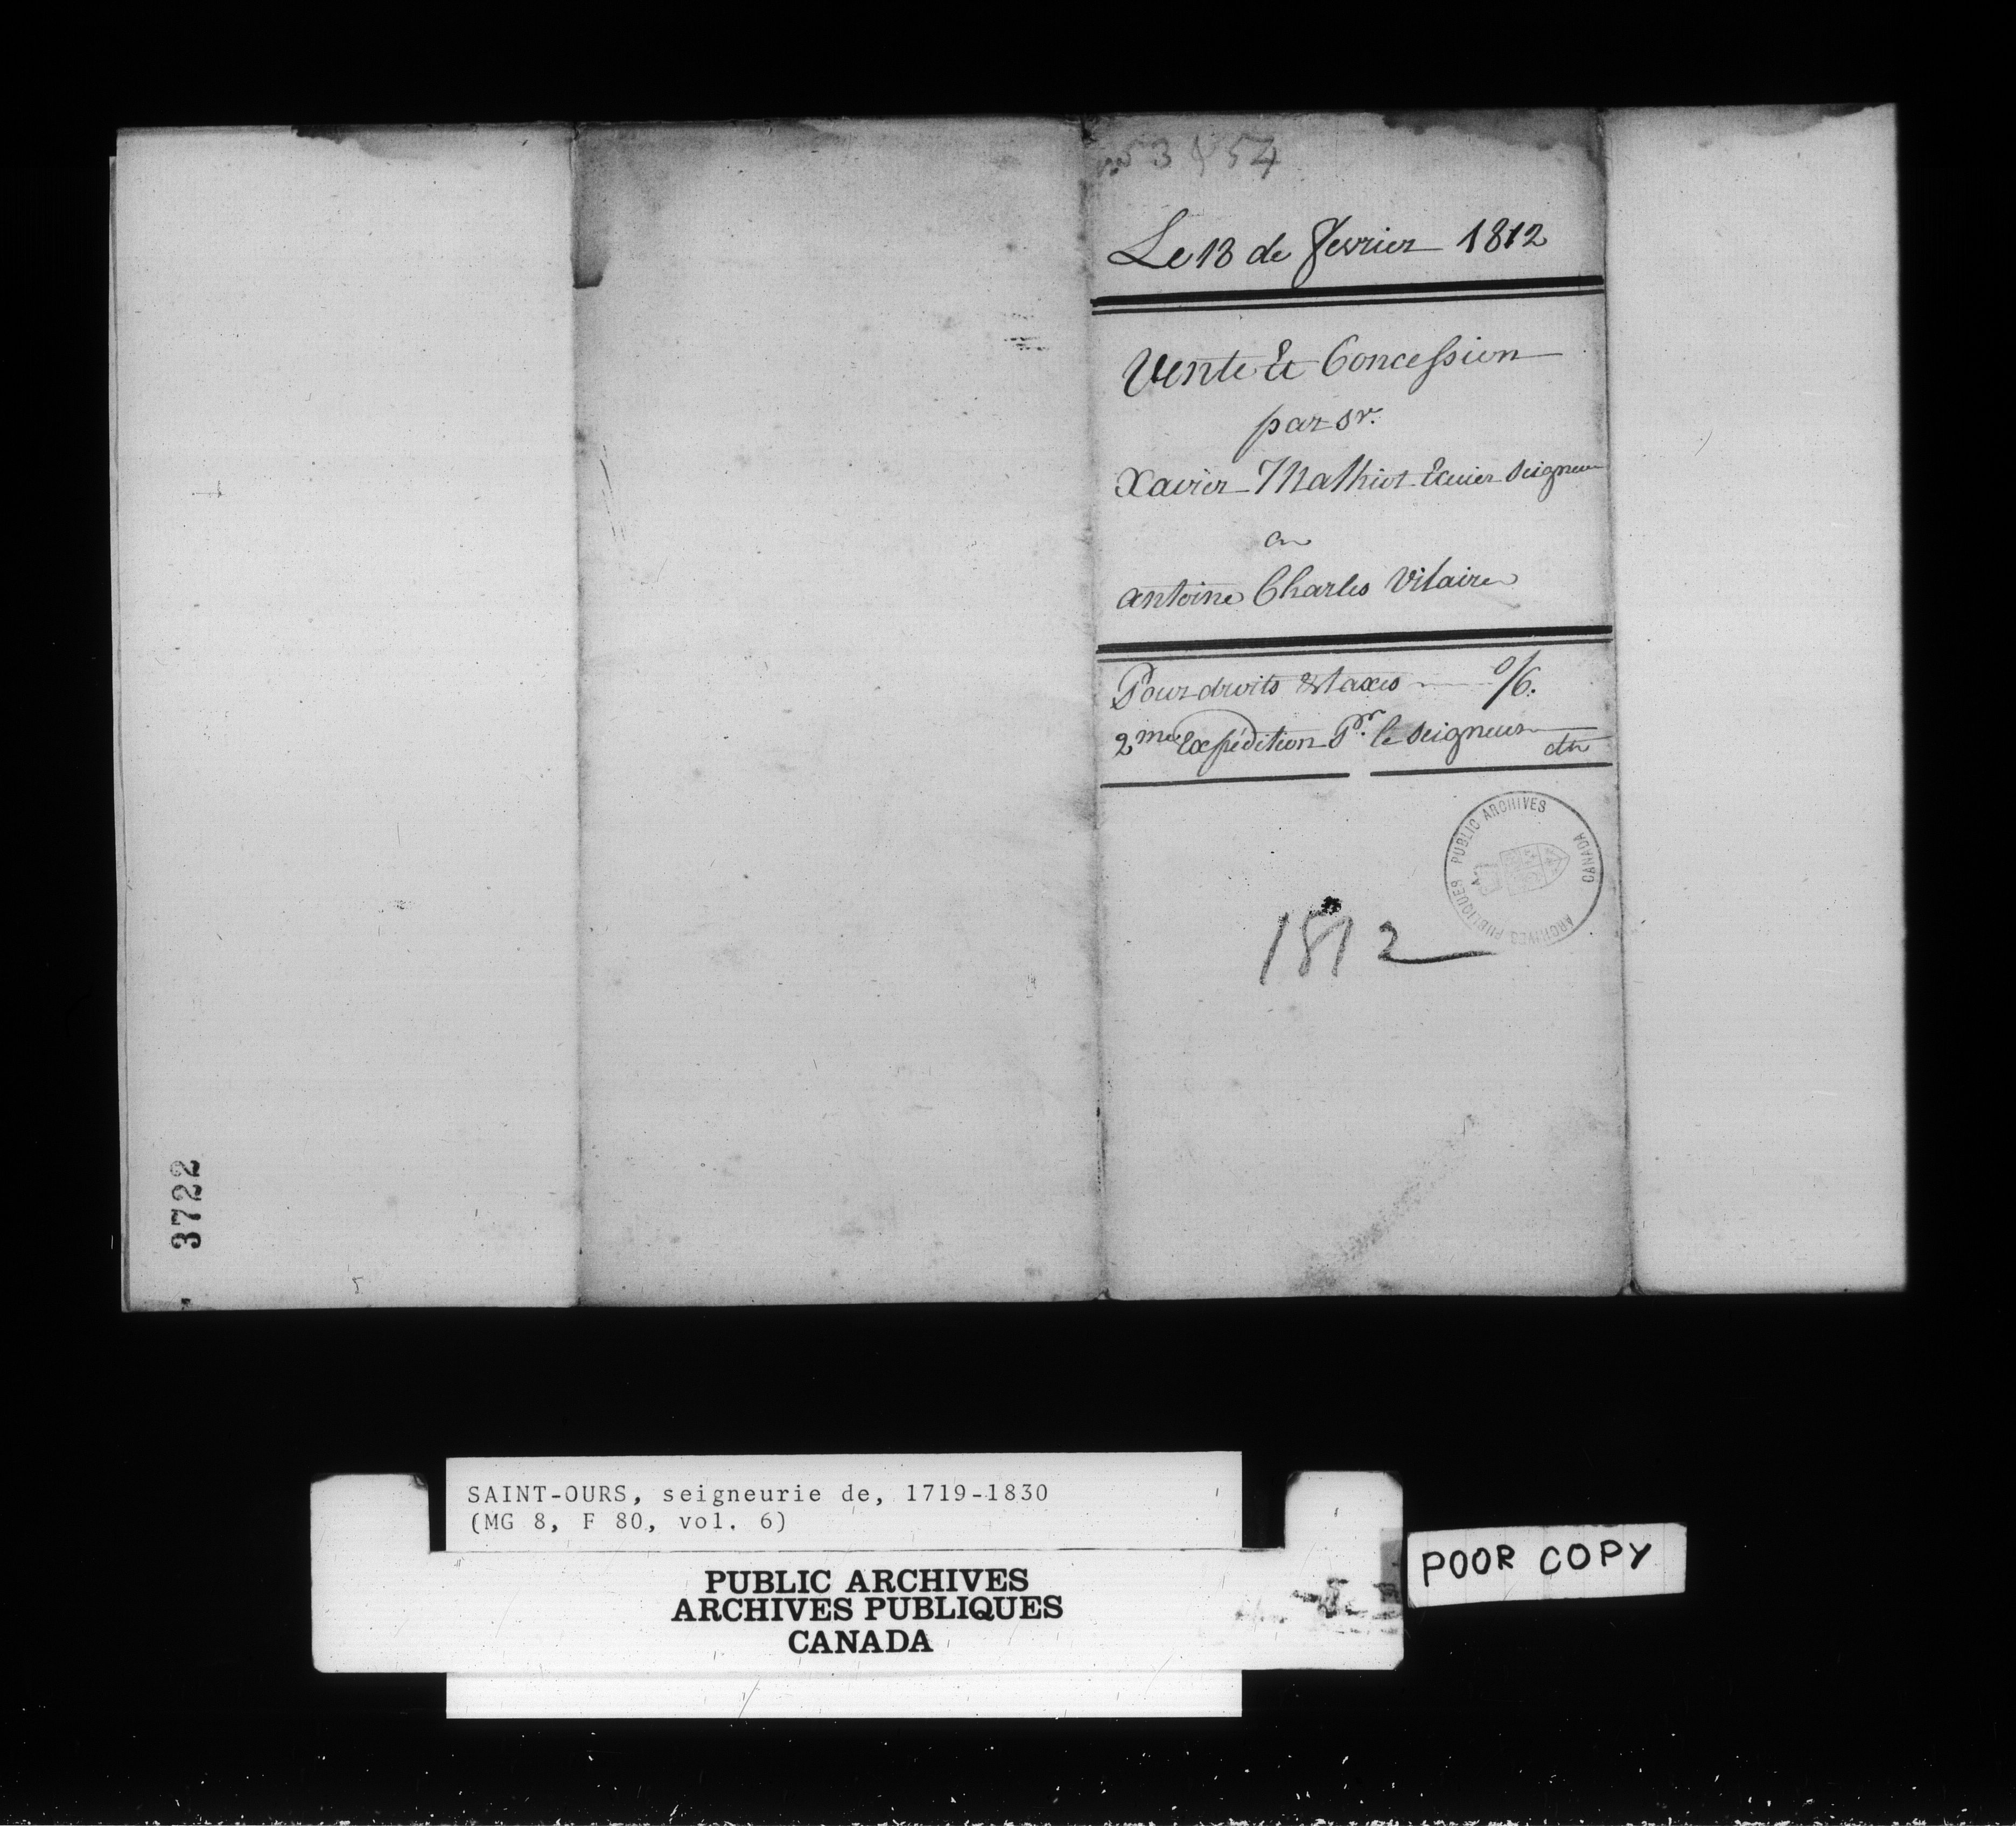 n 53 & 54
Le 13 de fevrier 1812
Vente Et Concession
par Sr.
Xavier Malhiot Ecuier Seigneur
a
antoine Charles Vilaire
Pour droits & taxes 0/6.
2me Expédition Pr. le Seigneur
du
PUBLIC ARCHIVES CANADA
ARCHIVES PUBLIQUES
1812
3722
SAINT-OURS, seigneurie de, 1719-1830
(MG 8, F 80, vol. 6)
PUBLIC ARCHIVES
ARCHIVES PUBLIQUES
CANADA
POOR COPY